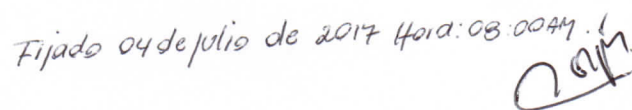 Fijado 04 de julio de 2017 Hora: 08:00AM.